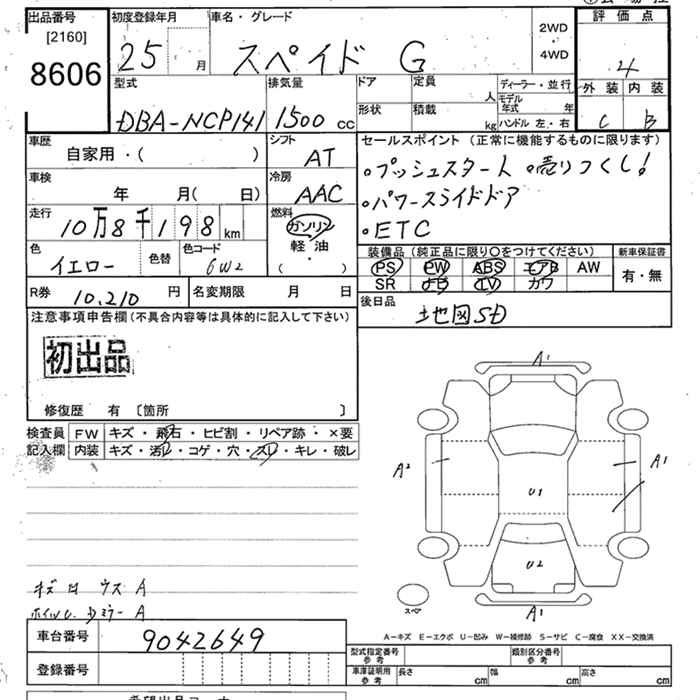 出品番号
[2160]
8606
初度登録年月
25 月
車名・グレード
スペイド G
2WD
・
4WD
評価点
4
外装 内装
C B
型式
DBA-NCP141
排気量
1500 cc
ドア
定員
人
形状
積載
kg
ディーラー・並行
モデル年式 年
ハンドル 左・右
車歴
自家用・( )
シフト
AT
車検
年 月( 日)
冷房
AAC
走行
10万8千198 km
燃料
ガソリン
軽油
( ・ )
色
イエロー
色替
色コード
6W2
R券 10,210 円
名変期限 月 日
セールスポイント (正常に機能するものに限ります)
・プッシュスタート ・売りつくし!
・パワースライドドア
・ETC
装備品 (純正品に限り〇をつけてください)
PS PW ABS エアB AW
SR ナビ TV カワ
新車保証書
有・無
後日品
地図SD
注意事項申告欄 (不具合内容等は具体的に記入して下さい)
初出品
修復歴 有 〔箇所 〕
検査員
記入欄
FW キズ・飛石・ヒビ割・リペア跡・×要
内装 キズ・汚レ・コゲ・穴・スレ・キレ・破レ
A1
A2
A1
U1
U2
A1
スペア
キズ 凹 ウス A
ホイルU. Dミラー A
A−キズ E−エクボ U−凹み W−補修跡 S−サビ C−腐食 XX−交換済
車台番号 9042649
登録番号
型式指定番号
参考
類別区分番号
参考
車庫証明用
参考
長さ cm
幅 cm
高さ cm